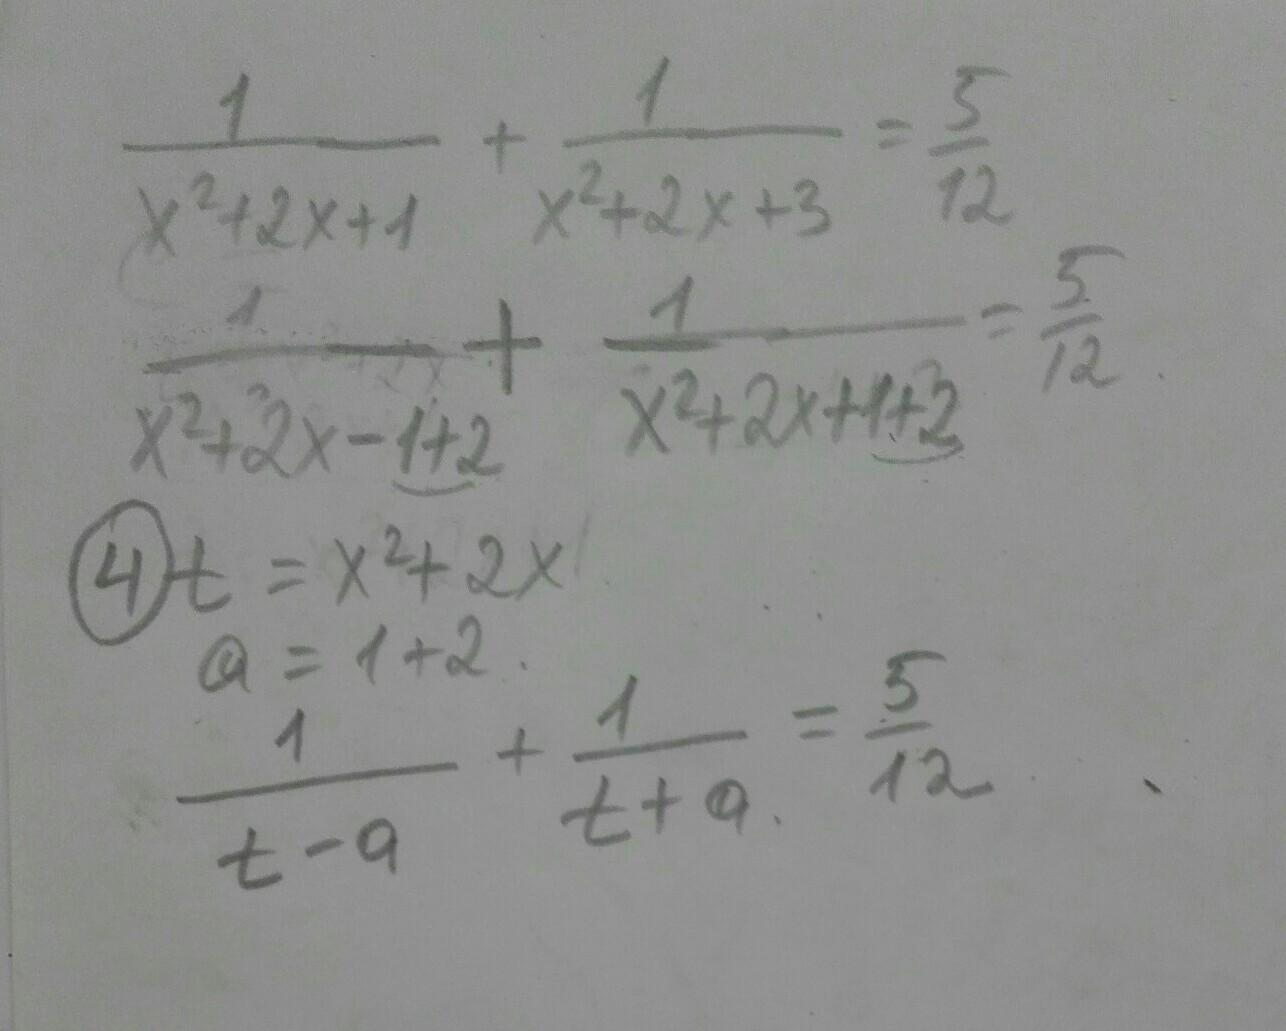 1/(x²+2x+1) + 1/(x²+2x+3) = 5/12
1/(x²+2x-1+2) + 1/(x²+2x+1+2) = 5/12
④ t = x²+2x
a = 1+2.
1/(t-a) + 1/(t+a) = 5/12